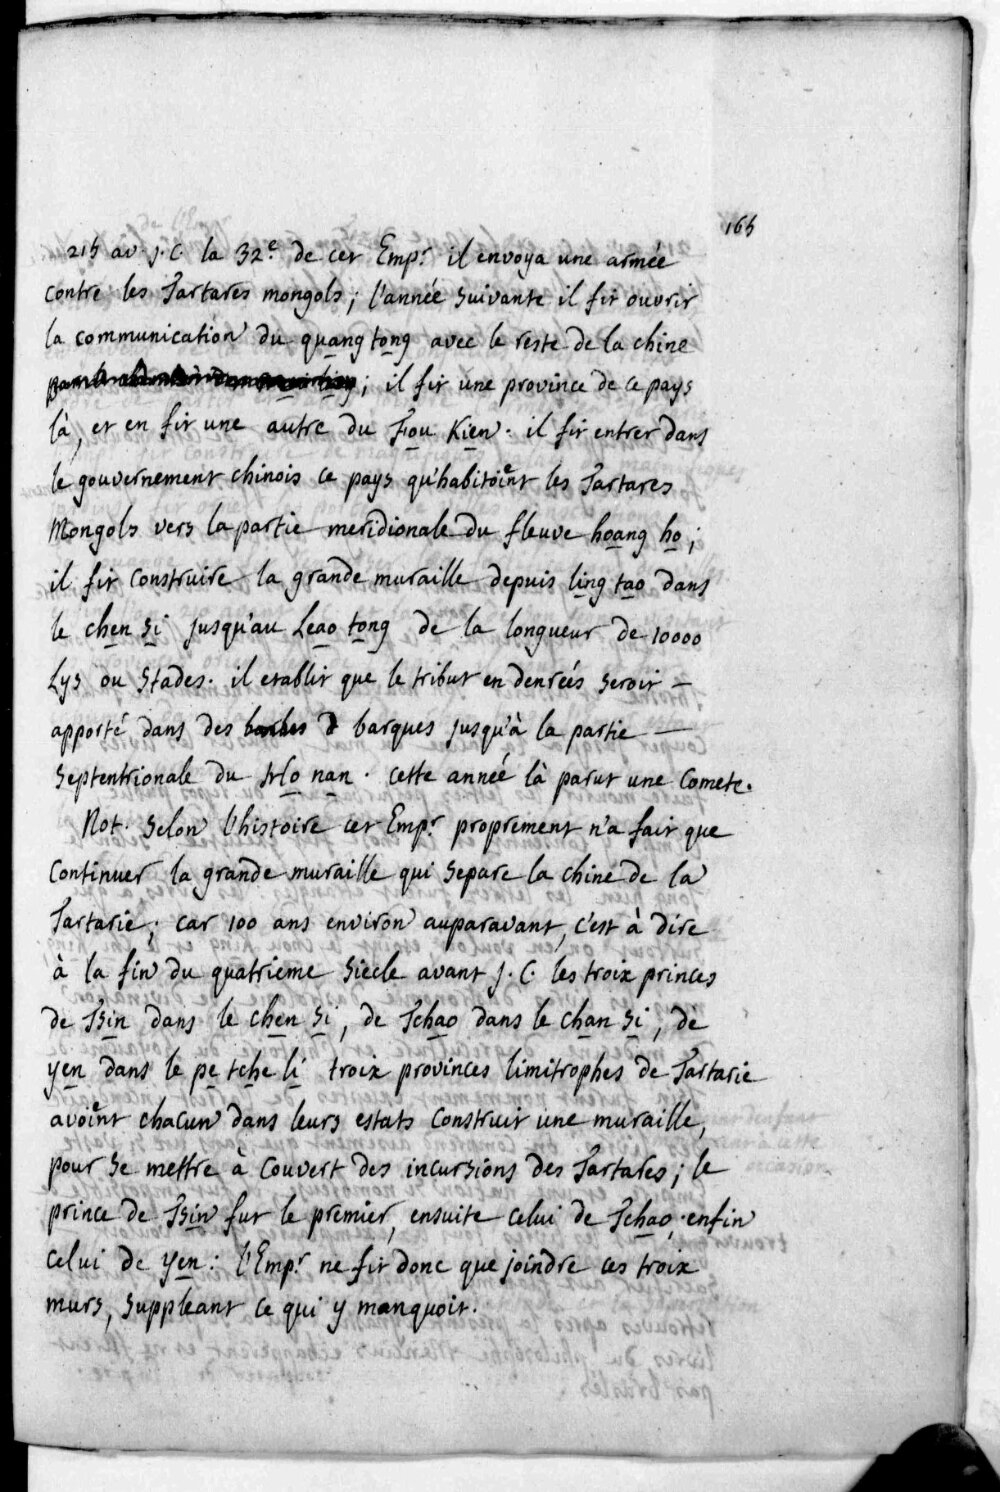 165
215 av. J. C. la 32e de cet Emp.r il envoya une armée
contre les Tartares mongols; l'année suivante il fit ouvrir
la communication du quang tong avec le reste de la chine
; il fit une province de ce pays
là, et en fit une autre du Fou Kien. il fit entrer dans
le gouvernement chinois ce pays qu'habitoient les Tartares
Mongols vers la partie meridionale du fleuve hoang ho;
il fit construire la grande muraille depuis ling tao dans
le chen si jusqu'au Leao tong de la longueur de 10000
Lys ou stades. il etablit que le tribut en denrées seroit —
apporté dans des barques jusqu'à la partie —
septentrionale du nan. cette année là parut une comete.
Not. selon l'histoire cet Emp.r proprement n'a fait que
continuer la grande muraille qui separe la chine de la
Tartarie; car 100 ans environ auparavant, c'est à dire
à la fin du quatrieme siecle avant J. C. les troix princes
de Tsin dans le chen si, de Tchao dans le chan si, de
yen dans le pe tche li troix provinces limitrophes de Tartarie
avoient chacun dans leurs estats construit une muraille,
pour se mettre à couvert des incursions des Tartares; le
prince de Tsin fut le premier, ensuite celui de Tchao, enfin
celui de yen: l'Emp.r ne fit donc que joindre ces troix
murs, suppleant ce qui y manquoit.